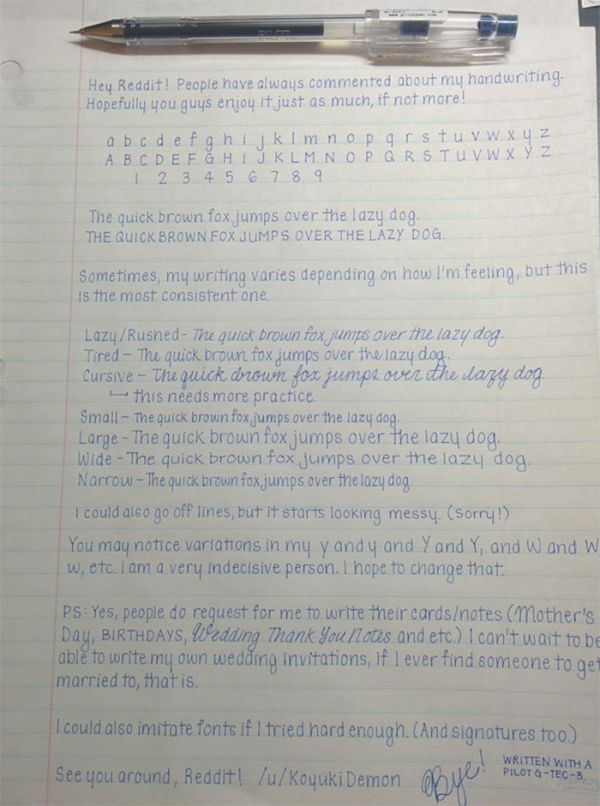 PILOT
www.pilotpen.com
Hey Reddit! People have always commented about my handwriting.
Hopefully you guys enjoy it just as much, if not more!
a b c d e f g h i j k l m n o p q r s t u v w x y z
A B C D E F G H I J K L M N O P Q R S T U V W X Y Z
1 2 3 4 5 6 7 8 9
The quick brown fox jumps over the lazy dog.
THE QUICK BROWN FOX JUMPS OVER THE LAZY DOG.
Sometimes, my writing varies depending on how I'm feeling, but this
is the most consistent one.
Lazy/Rushed - The quick brown fox jumps over the lazy dog.
Tired - The quick brown fox jumps over the lazy dog.
Cursive - The quick brown fox jumps over the lazy dog.
↳ this needs more practice.
Small - The quick brown fox jumps over the lazy dog.
Large - The quick brown fox jumps over the lazy dog.
Wide - The quick brown fox jumps over the lazy dog.
Narrow - The quick brown fox jumps over the lazy dog.
I could also go off lines, but it starts looking messy. (Sorry!)
You may notice variations in my y and y and Y and Y, and W and W
w, etc. I am a very indecisive person. I hope to change that.
PS: Yes, people do request for me to write their cards/notes (Mother's
Day, BIRTHDAYS, Wedding Thank You Notes and etc.) I can't wait to be
able to write my own wedding invitations, if I ever find someone to get
married to, that is.
I could also imitate fonts if I tried hard enough. (And signatures too.)
See you around, Reddit! /u/KoyukiDemon
Bye!
WRITTEN WITH A
PILOT G-TEC-3.